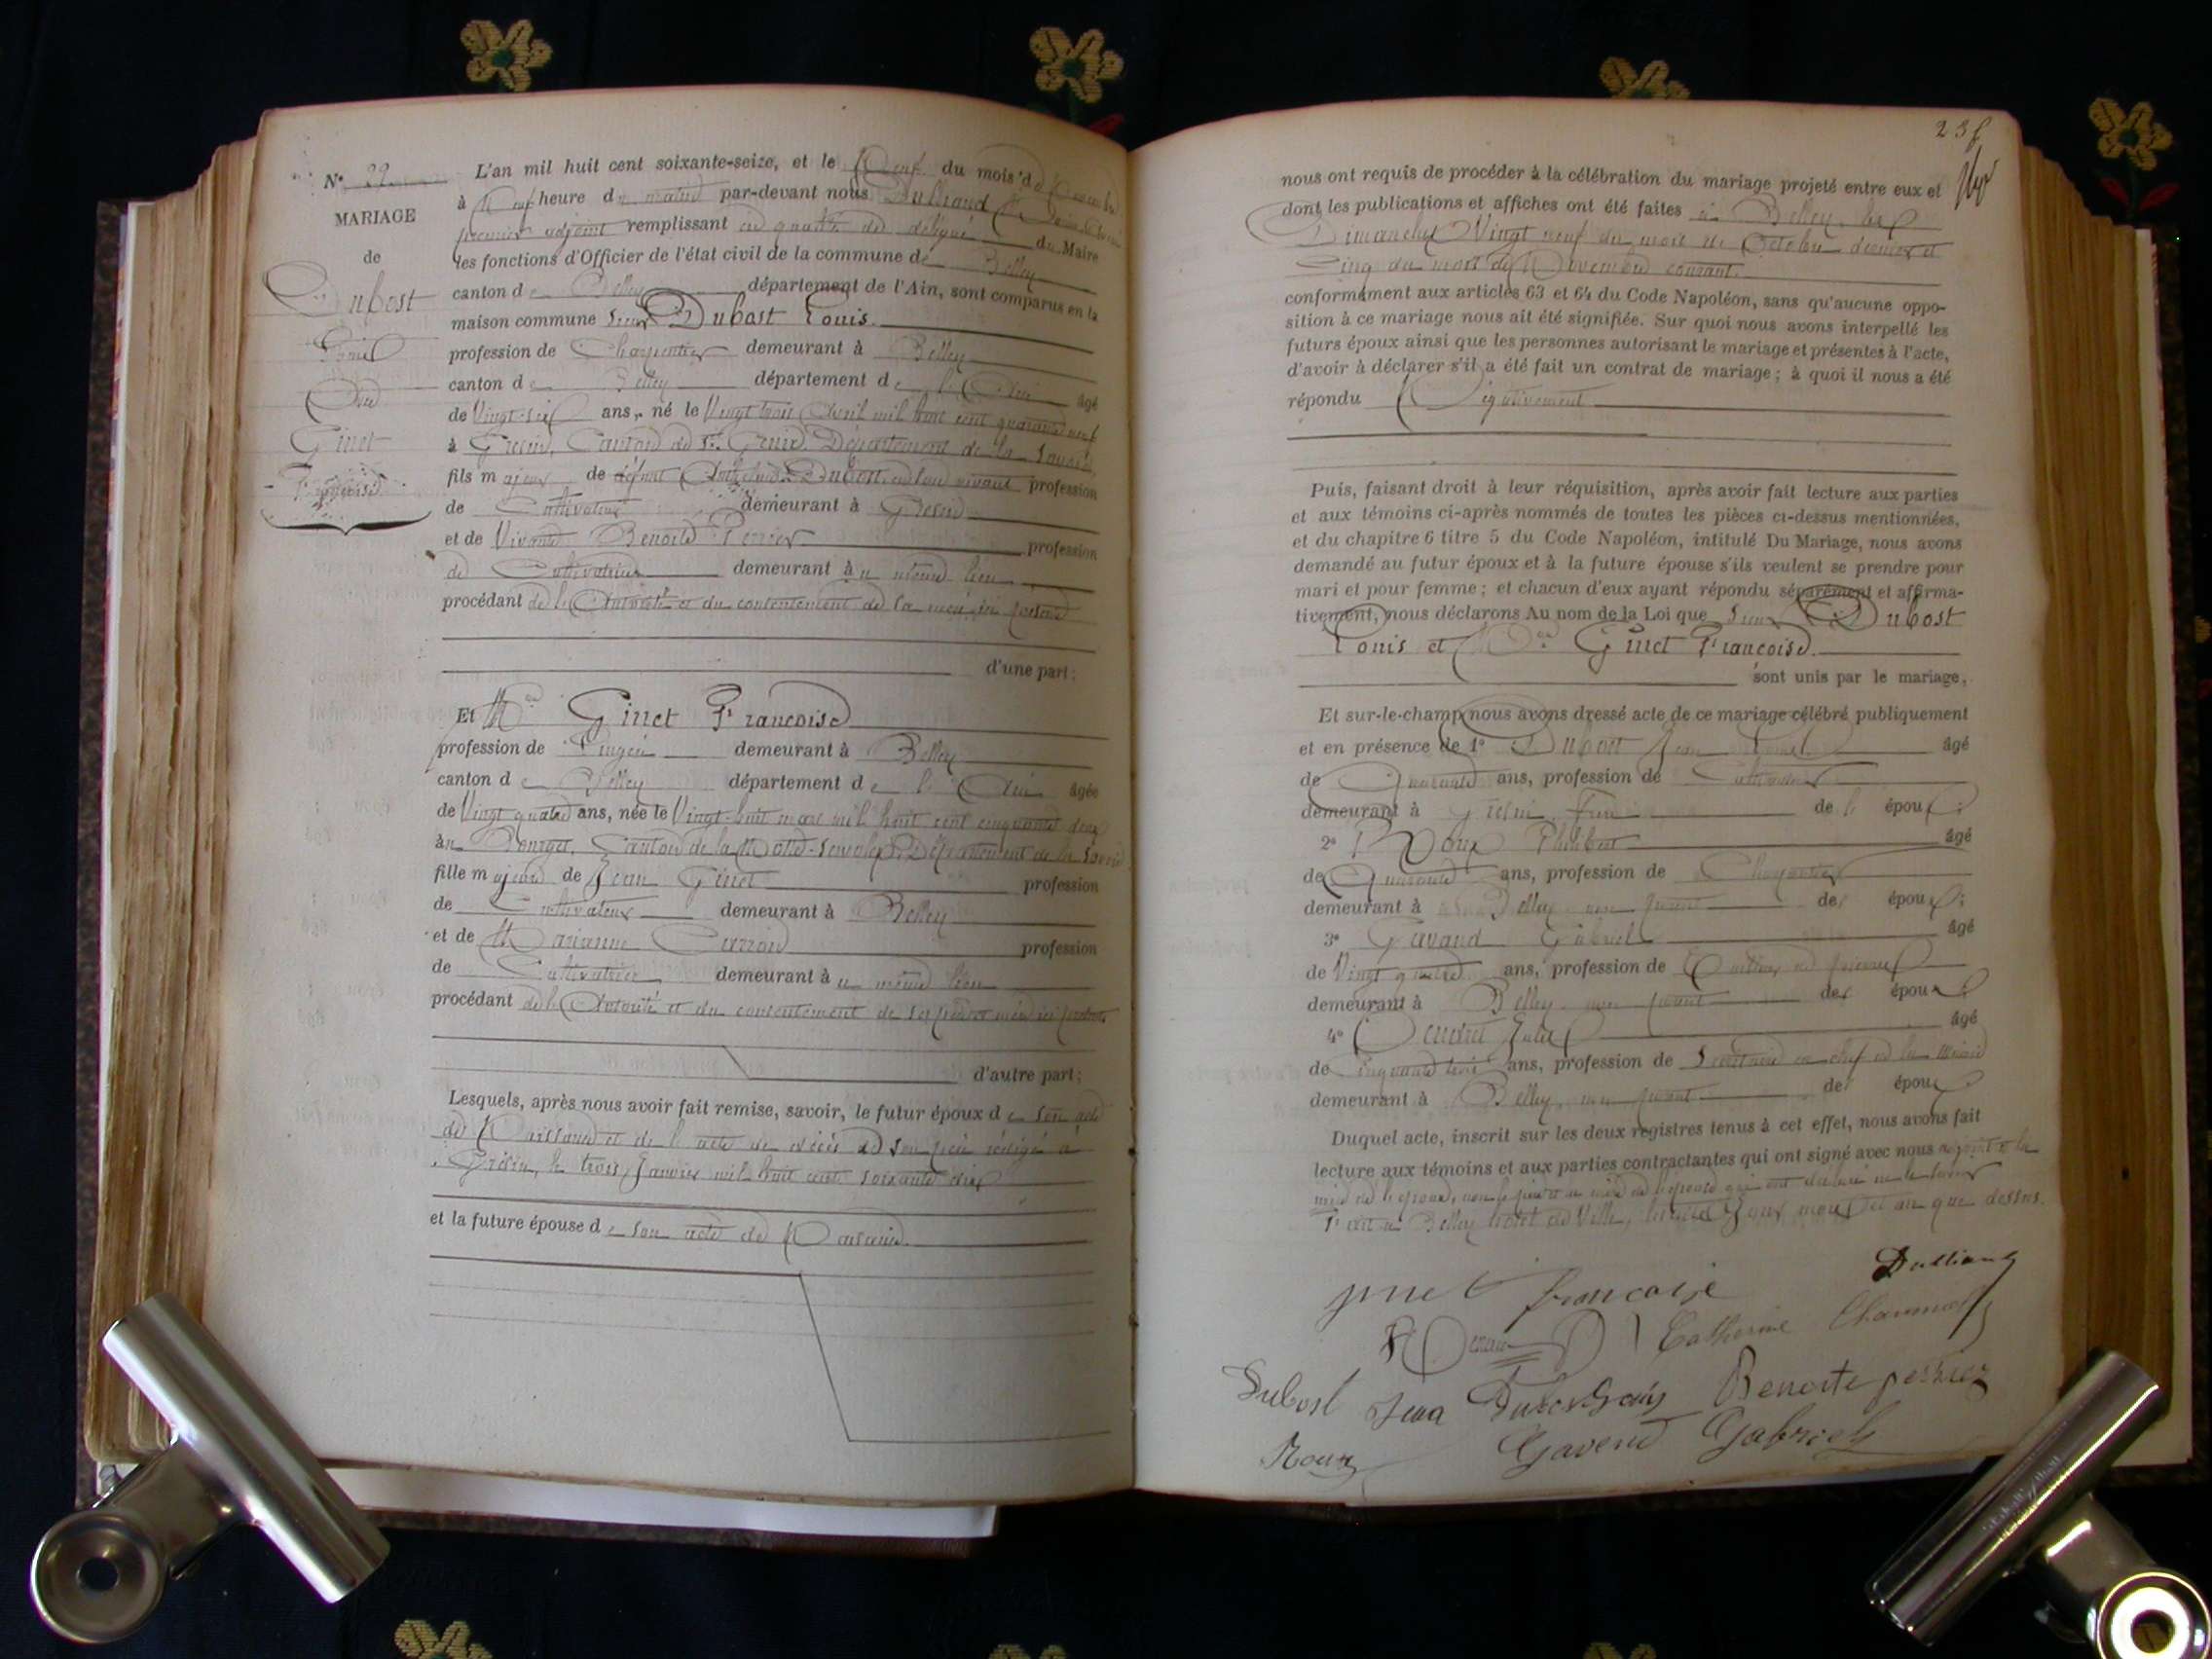 N° 29
MARIAGE
de
Dubost
Louis
Et
Ginet
Françoise
L'an mil huit cent soixante-seize, et le Neuf du mois de Novembre
à Neuf heure du matin par-devant nous
premier adjoint remplissant en qualité de délégué du Maire
les fonctions d'Officier de l'état civil de la commune de Belley
canton de Belley département de l'Ain, sont comparus en la
maison commune sieur Dubost Louis
profession de Charpentier demeurant à Belley
canton de Belley département de l'Ain âgé
de Vingt-six ans, né le Vingt trois Avril mil huit cent quarante neuf
à Gresin, Canton de St. Genix, Département de la Savoie,
fils majeur de défunt Dubost, en son vivant profession
de Cultivateur demeurant à Gresin
et de Vivante Benoite Perrier profession
de Cultivatrice demeurant au même lieu
procédant de l'Autorité et du consentement de sa mère ici présente
d'une part;
Et Mlle Ginet Françoise
profession de Lingère demeurant à Belley
canton de Belley département de l'Ain âgée
de Vingt quatre ans, née le Vingt-huit mars mil huit cent cinquante deux
au Bourget, Canton de la Motte-Servolex, Département de la Savoie
fille majeure de Jean Ginet profession
de Cultivateur demeurant à Belley
et de Marianne Carron profession
de Cultivatrice demeurant au même lieu
procédant de l'Autorité et du consentement de ses père et mère ici présents
d'autre part;
Lesquels, après nous avoir fait remise, savoir, le futur époux de son acte
de Naissance et de l'acte de décès de son père rédigé à
Grésin, le trois Janvier mil huit cent soixante dix
et la future épouse de son acte de Naissance.
nous ont requis de procéder à la célébration du mariage projeté entre eux et
dont les publications et affiches ont été faites à Belley les
Dimanches Vingt neuf du mois de Octobre dernier et
Cinq du mois de Novembre courant.
conformément aux articles 63 et 64 du Code Napoléon, sans qu'aucune oppo-
sition à ce mariage nous ait été signifiée. Sur quoi nous avons interpellé les
futurs époux ainsi que les personnes autorisant le mariage et présentes à l'acte,
d'avoir à déclarer s'il a été fait un contrat de mariage; à quoi il nous a été
répondu Négativement
Puis, faisant droit à leur réquisition, après avoir fait lecture aux parties
et aux témoins ci-après nommés de toutes les pièces ci-dessus mentionnées,
et du chapitre 6 titre 5 du Code Napoléon, intitulé Du Mariage, nous avons
demandé au futur époux et à la future épouse s'ils veulent se prendre pour
mari et pour femme; et chacun d'eux ayant répondu séparément et affirma-
tivement, nous déclarons Au nom de la Loi que sieur Dubost
Louis et Mlle Ginet Françoise.
sont unis par le mariage.
Et sur-le-champ nous avons dressé acte de ce mariage célébré publiquement
et en présence de 1° Dubost Jean âgé
de Quarante ans, profession de Cultivateur
demeurant à Gresin, frère de l'époux;
2° Roux Philibert âgé
de Quarante ans, profession de Charpentier
demeurant à Belley non parent des époux;
3° Gavand Gabriel âgé
de Vingt quatre ans, profession de
demeurant à Belley non parent des époux;
4° Jules âgé
de Cinquante trois ans, profession de Secrétaire en chef de la Mairie
demeurant à Belley, non parent des époux
Duquel acte, inscrit sur les deux registres tenus à cet effet, nous avons fait
lecture aux témoins et aux parties contractantes qui ont signé avec nous adjoint et la
mère de l'époux, non le père et la mère de l'épouse qui ont déclaré ne le savoir
Fait à Belley hôtel de Ville, les dits Jour, mois et an que dessus.
ginet francoise
Catherine
Dubost Jean Dubost Louis Benoite perrier
Roux Gavend Gabriel